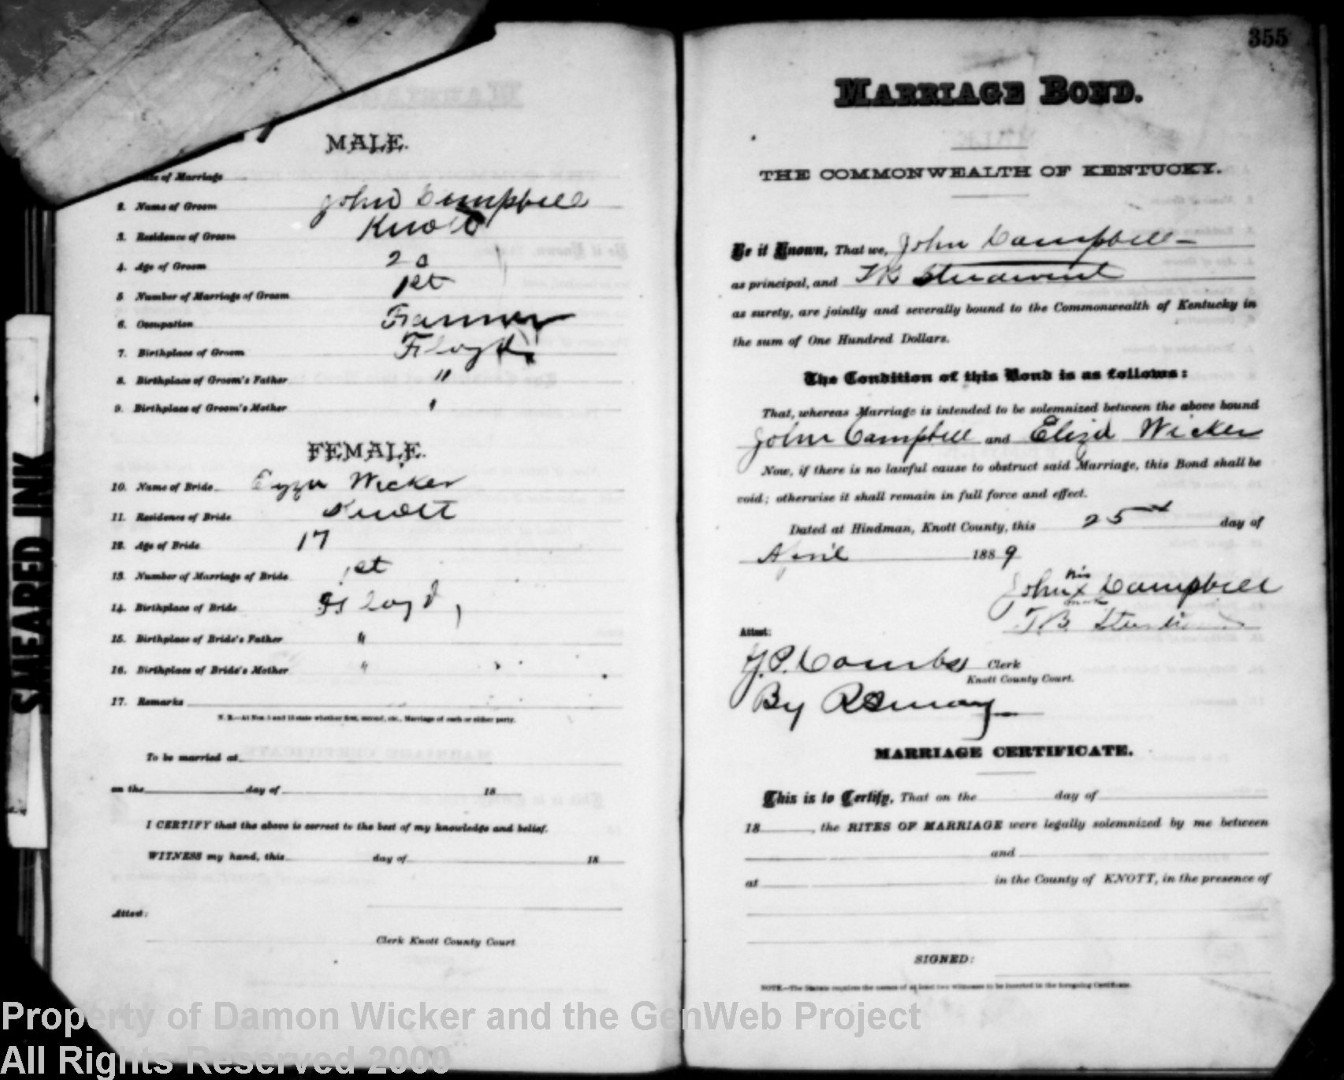 MALE.
of Marriage
2. Name of Groom John Campbell
3. Residence of Groom Knott
4. Age of Groom 20
5 Number of Marriage of Groom 1st
6. Occupation Farmer
7. Birthplace of Groom Floyd
8. Birthplace of Groom's Father "
9. Birthplace of Groom's Mother "
FEMALE.
10. Name of Bride Wicker
11. Residence of Bride Knott
12. Age of Bride 17
13. Number of Marriage of Bride 1st
14. Birthplace of Bride Floyd
15. Birthplace of Bride's Father "
16. Birthplace of Bride's Mother "
17. Remarks
N. B.—At Nos. 5 and 13 state whether first, second, etc., Marriage of each or either party.
To be married at
on the day of 18
I CERTIFY that the above is correct to the best of my knowledge and belief.
WITNESS my hand, this day of 18
Attest:
Clerk Knott County Court
SMEARED INK
355
MARRIAGE BOND.
THE COMMONWEALTH OF KENTUCKY.
Be it Known, That we, John Campbell
as principal, and
as surety, are jointly and severally bound to the Commonwealth of Kentucky in
the sum of One Hundred Dollars.
The Condition of this Bond is as follows:
That, whereas Marriage is intended to be solemnized between the above bound
John Campbell and Eliza Wicker
Now, if there is no lawful cause to obstruct said Marriage, this Bond shall be
void; otherwise it shall remain in full force and effect.
Dated at Hindman, Knott County, this 25 day of
April 1889
John his x mark Campbell
T.B.
Attest:
Combs Clerk
Knott County Court.
By
MARRIAGE CERTIFICATE.
This is to Certify, That on the day of
18 , the RITES OF MARRIAGE were legally solemnized by me between
and
at in the County of KNOTT, in the presence of
SIGNED:
NOTE.—The Statute requires the names of at least two witnesses to be inserted in the foregoing Certificate.
Property of Damon Wicker and the GenWeb Project
All Rights Reserved 2000